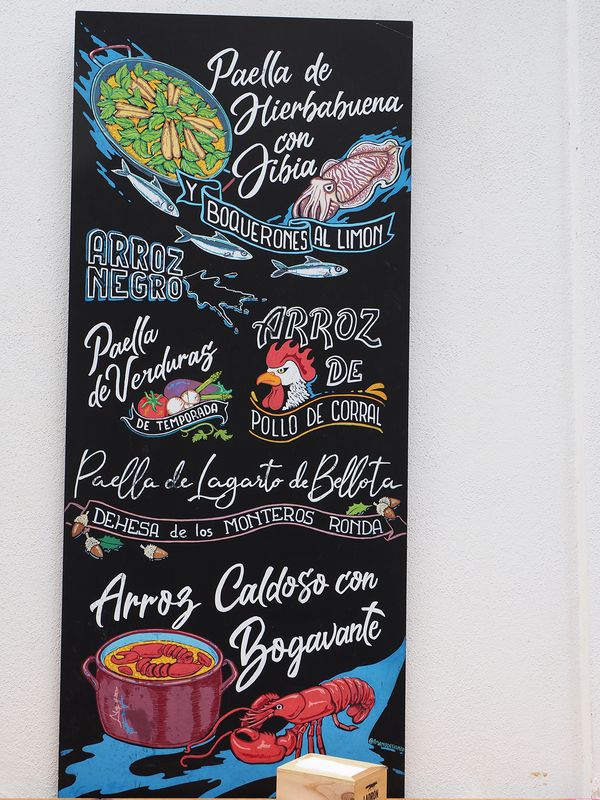 Paella de
Hierbabuena
con
Jibia
Y BOQUERONES AL LIMON
ARROZ
NEGRO
Paella
de Verduras
DE TEMPORADA
ARROZ
DE
POLLO DE CORRAL
Paella de Lagarto de Bellota
DEHESA de los MONTEROS RONDA
Arroz Caldoso con
Bogavante